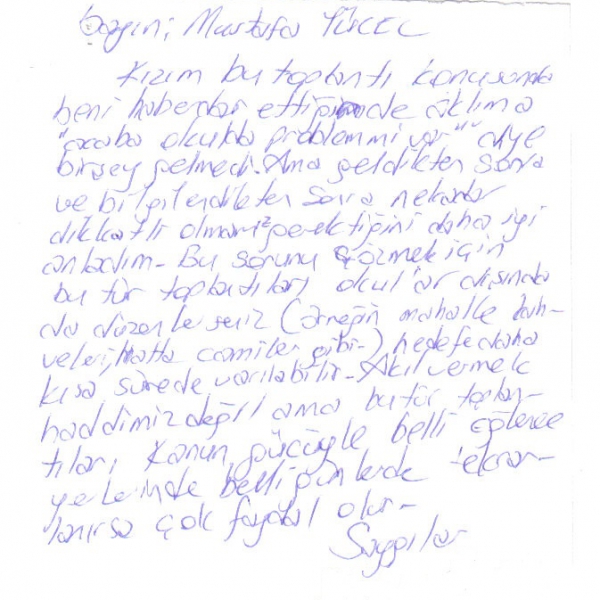 Sayın; Mustafa YÜCEL
Kızım bu toplantı konusunda
beni haberdar ettiğinde aklıma
"acaba okulda problem mi var" diye
birşey gelmedi. Ama geldikten sonra
ve bilgilendikten sonra nekadar
dikkatli olmamız gerektiğini daha iyi
anladım - Bu sorunu çözmek için
bu tür toplantıları okullar dışında
da düzenlerseniz (örneğin mahalle kah-
veleri, Hatta camiler gibi -) hedefe daha
kısa sürede varılabilir - Akıl vermek
haddimiz değil ama bu tür toplan-
tıları, Kanun gücüyle belli eğlence
yerlerinde belli günlerde tekrar-
lanırsa çok faydalı olur -
Saygılar